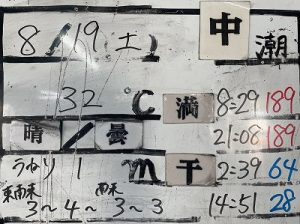 8/19(土) 中潮
32℃ 満 8=29 189
晴/曇 21=08 189
うねり 1m 干 2=39 64
東南東 南東
3~4~3~3 14=51 28